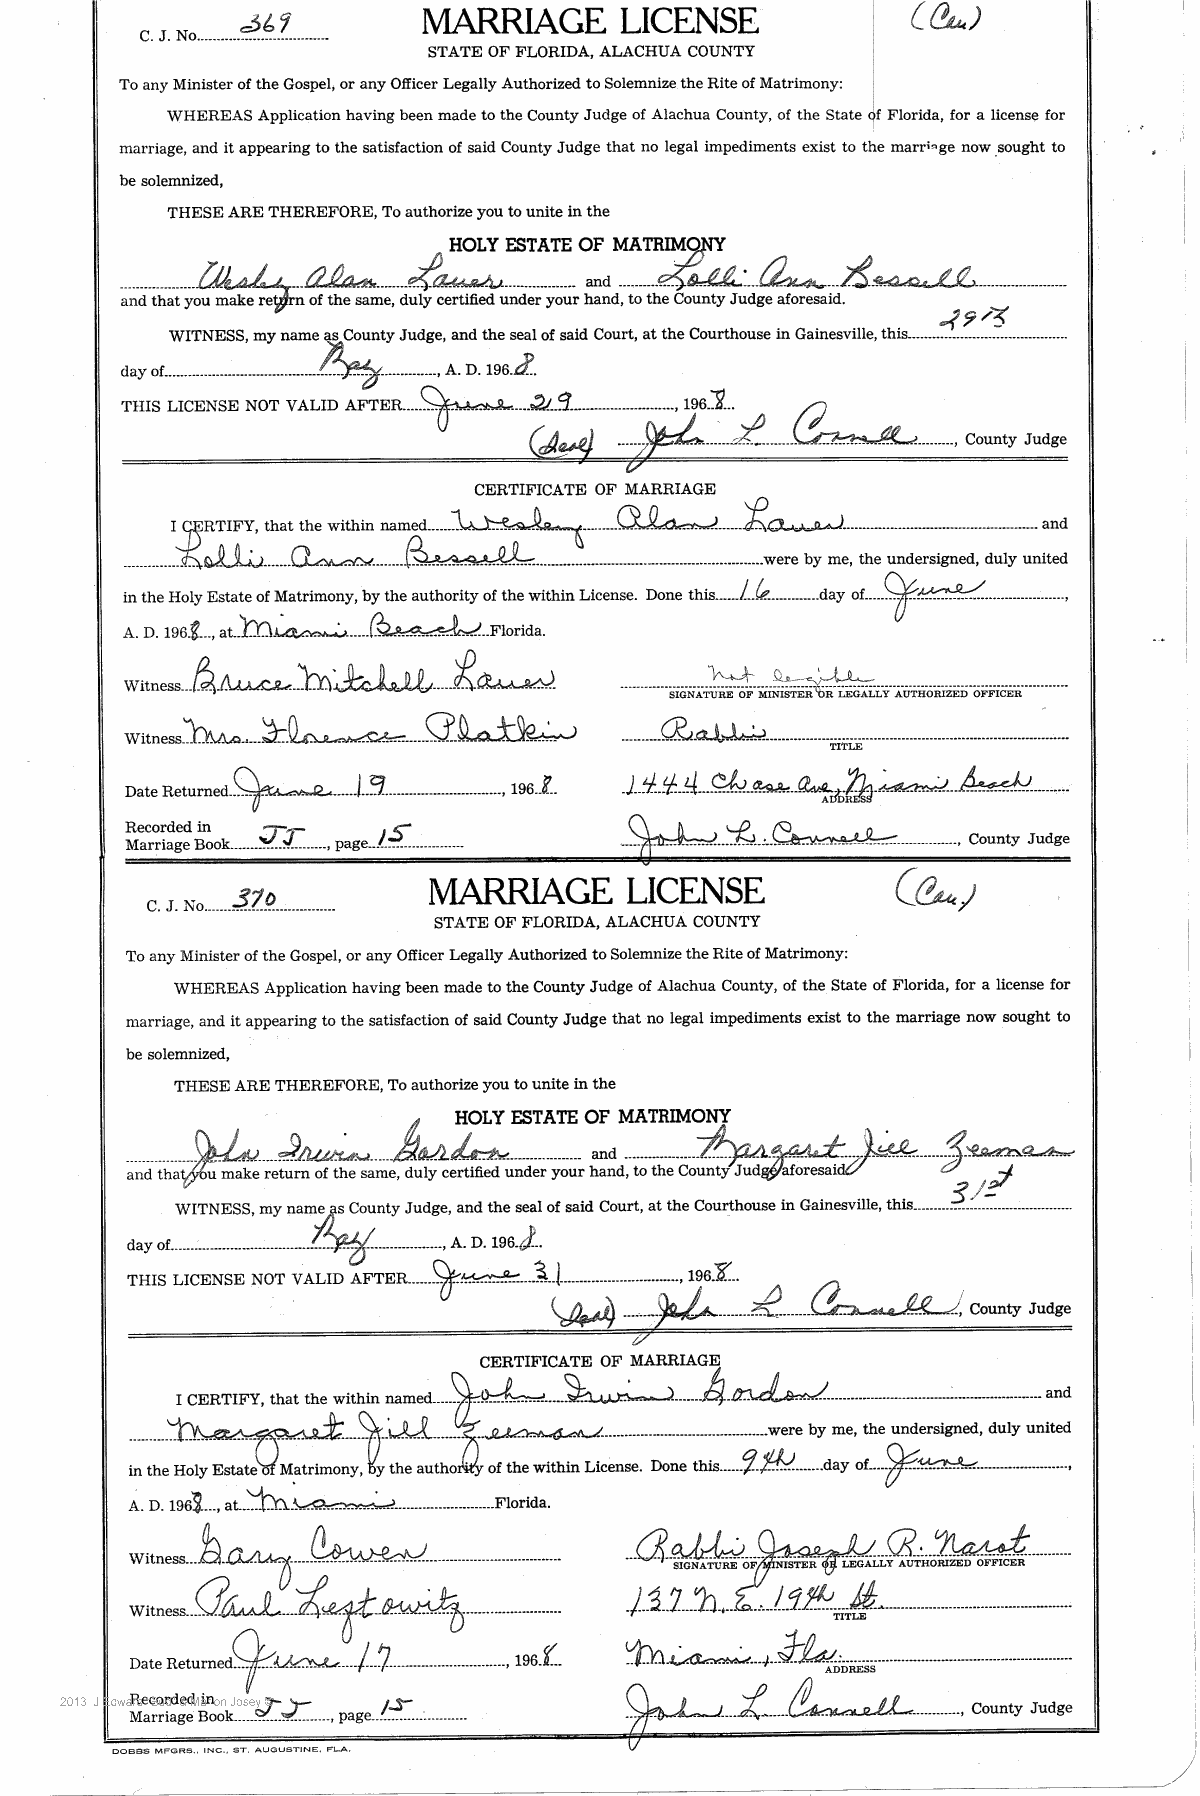 C. J. No. 369 MARRIAGE LICENSE (Cau)
STATE OF FLORIDA, ALACHUA COUNTY
To any Minister of the Gospel, or any Officer Legally Authorized to Solemnize the Rite of Matrimony:
WHEREAS Application having been made to the County Judge of Alachua County, of the State of Florida, for a license for
marriage, and it appearing to the satisfaction of said County Judge that no legal impediments exist to the marriage now sought to
be solemnized,
THESE ARE THEREFORE, To authorize you to unite in the
HOLY ESTATE OF MATRIMONY
Wesley Alan Lauer and Lolli Ann Bessell
and that you make return of the same, duly certified under your hand, to the County Judge aforesaid.
WITNESS, my name as County Judge, and the seal of said Court, at the Courthouse in Gainesville, this 29th
day of May, A. D. 1968.
THIS LICENSE NOT VALID AFTER June 29, 1968.
(Seal) John L. Connell, County Judge
CERTIFICATE OF MARRIAGE
I CERTIFY, that the within named Wesley Alan Lauer and
Lolli Ann Bessell were by me, the undersigned, duly united
in the Holy Estate of Matrimony, by the authority of the within License. Done this 16 day of June,
A. D. 1968, at Miami Beach Florida.
Witness Bruce Mitchell Lauer not legible
SIGNATURE OF MINISTER OR LEGALLY AUTHORIZED OFFICER
Witness Mrs. Florence Platkin Rabbi
TITLE
Date Returned June 19, 1968. 1444 Chase Ave, Miami Beach
ADDRESS
Recorded in
Marriage Book JJ, page 15 John L. Connell, County Judge
C. J. No. 370 MARRIAGE LICENSE (Cau.)
STATE OF FLORIDA, ALACHUA COUNTY
To any Minister of the Gospel, or any Officer Legally Authorized to Solemnize the Rite of Matrimony:
WHEREAS Application having been made to the County Judge of Alachua County, of the State of Florida, for a license for
marriage, and it appearing to the satisfaction of said County Judge that no legal impediments exist to the marriage now sought to
be solemnized,
THESE ARE THEREFORE, To authorize you to unite in the
HOLY ESTATE OF MATRIMONY
John Irwin Gordon and Margaret Jill Zeeman
and that you make return of the same, duly certified under your hand, to the County Judge aforesaid.
WITNESS, my name as County Judge, and the seal of said Court, at the Courthouse in Gainesville, this 31st
day of May, A. D. 1968.
THIS LICENSE NOT VALID AFTER June 31, 1968.
(Seal) John L Connell, County Judge
CERTIFICATE OF MARRIAGE
I CERTIFY, that the within named John Irwin Gordon and
Margaret Jill Zeeman were by me, the undersigned, duly united
in the Holy Estate of Matrimony, by the authority of the within License. Done this 9th day of June,
A. D. 1968, at Miami Florida.
Witness Gary Cowen Rabbi Joseph R. Narot
SIGNATURE OF MINISTER OR LEGALLY AUTHORIZED OFFICER
Witness Paul Leztowitz 137 N. E. 19th St.
TITLE
Date Returned June 17, 1968 Miami, Fla.
ADDRESS
Recorded in
Marriage Book JJ, page 15 John L. Connell, County Judge
DOBBS MFGRS., INC., ST. AUGUSTINE, FLA.